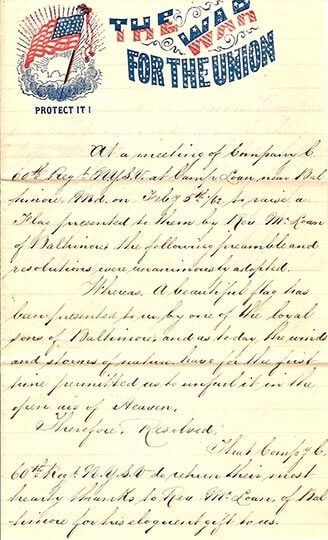 THE WAR
WAR
FOR THE UNION
PROTECT IT!
At a meeting of Company C
60th Regt N.Y.S.V. at Camp Loan, near Bal
timore, Md. on Feby 5th/62 to raise a
Flag presented to them by Rev McLoan
of Baltimore the following preamble and
resolutions were unanimously adopted.
Whereas, A beautiful flag has
been presented to us by one of the loyal
sons of Baltimore, and as today the winds
and storms of nature have for the first
time permitted us to unfurl it in the
open air of Heaven,
Therefore, Resolved,
That Comp'y C,
60th Regt N.Y.S.V do return their most
hearty thanks to Rev McLoan, of Bal
timore for his eloquent gift to us.